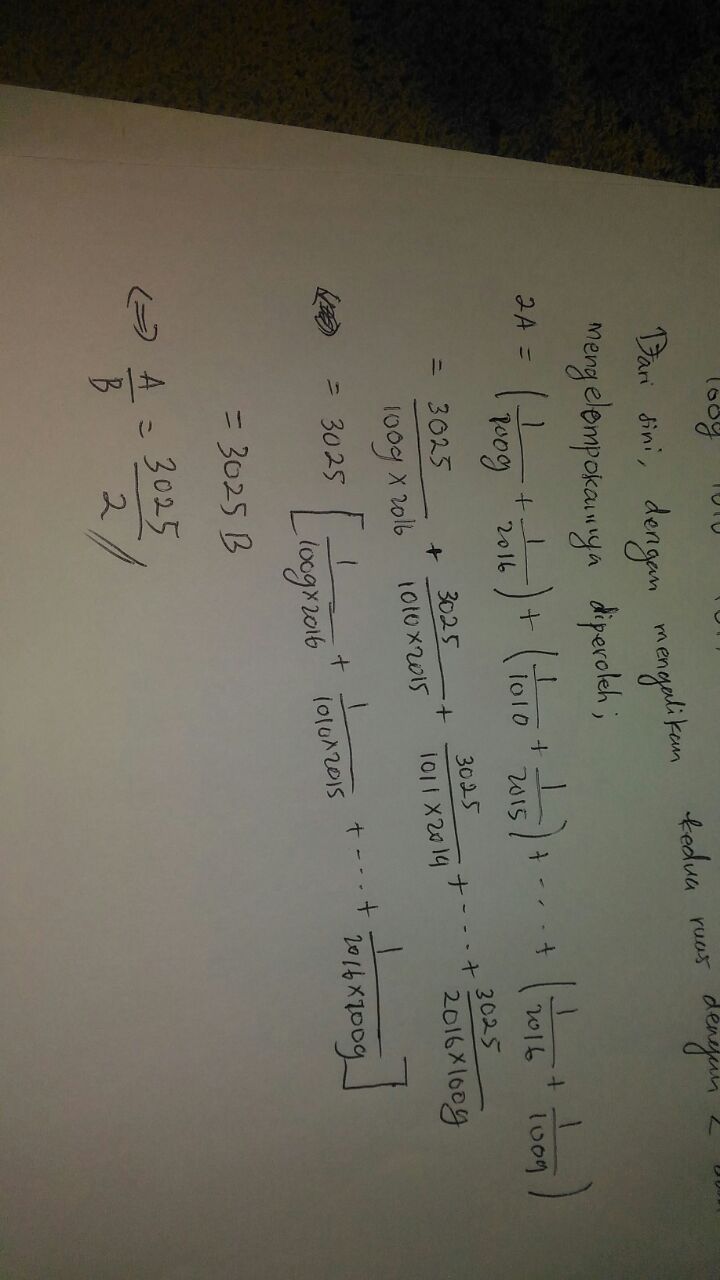 100g 1010
Dari sini, dengan mengalikan kedua ruas dengan 2
mengelompokannya diperoleh;
2A = (1/1009 + 1/2016) + (1/1010 + 1/2015) + ... + (1/2016 + 1/1009)
= 3025/(1009 × 2016) + 3025/(1010×2015) + 3025/(1011×2014) + ... + 3025/(2016×1009)
<=> = 3025 [1/(1009×2016) + 1/(1010×2015) + ... + 1/(2016×1009)]
= 3025 B
<=> A/B = 3025/2 //